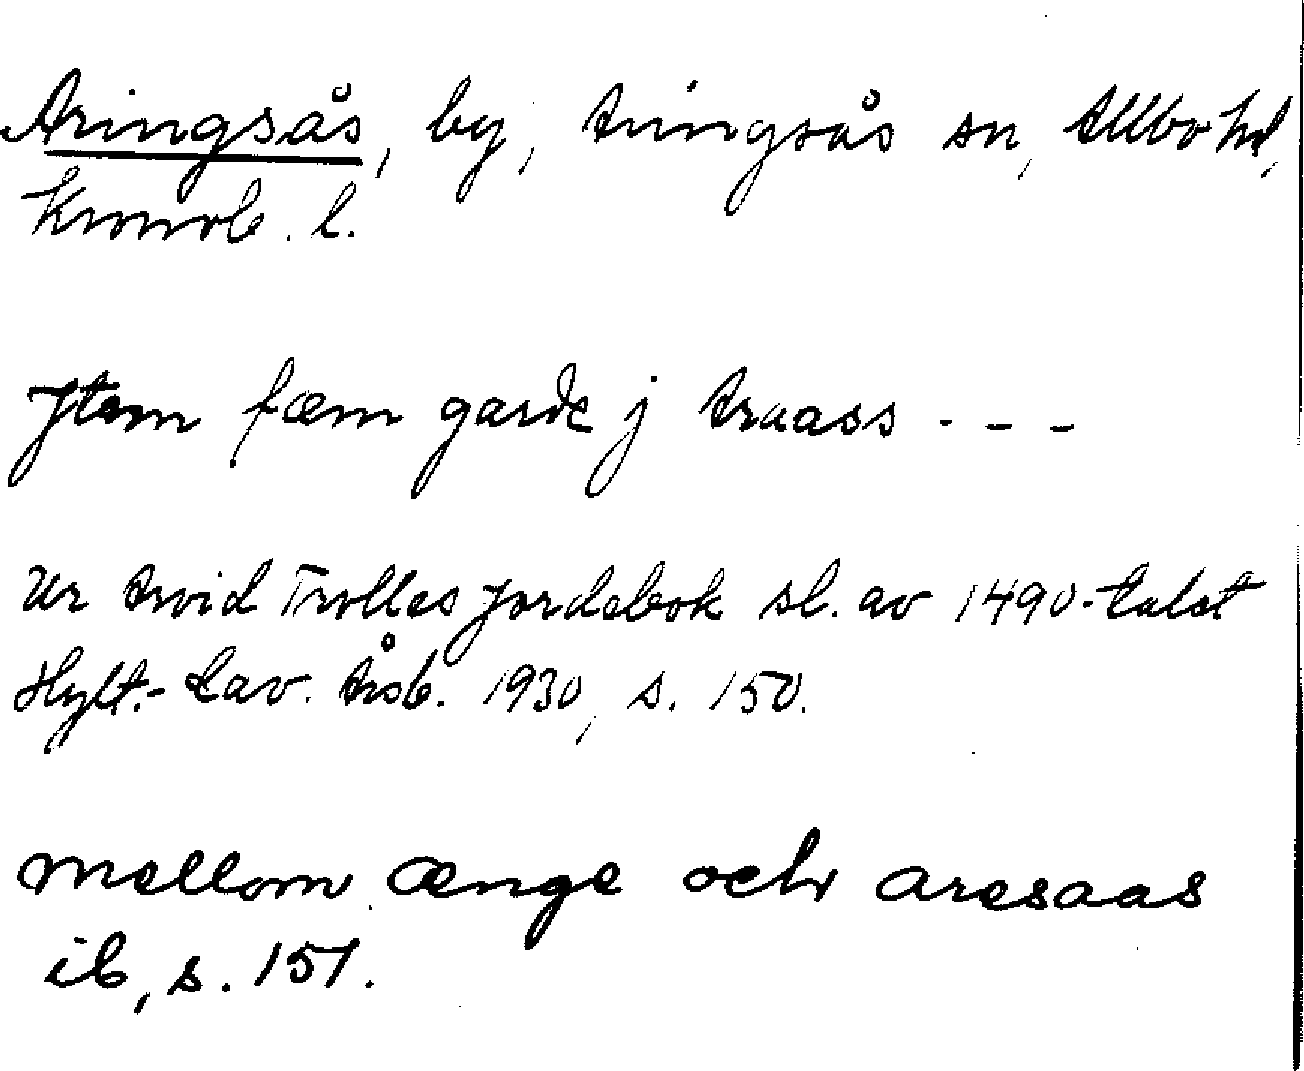 Aringsås, by, Aringsås sn, Allbo hd,
Kronob. l.
Jtem fæm garde j Araass - - -
Ur Arvid Trolles jordebok sl. av 1490-talet
Hylt.-Cav. Årsb. 1930, s. 150.
mellom ænge och aresaas
ib, s. 151.